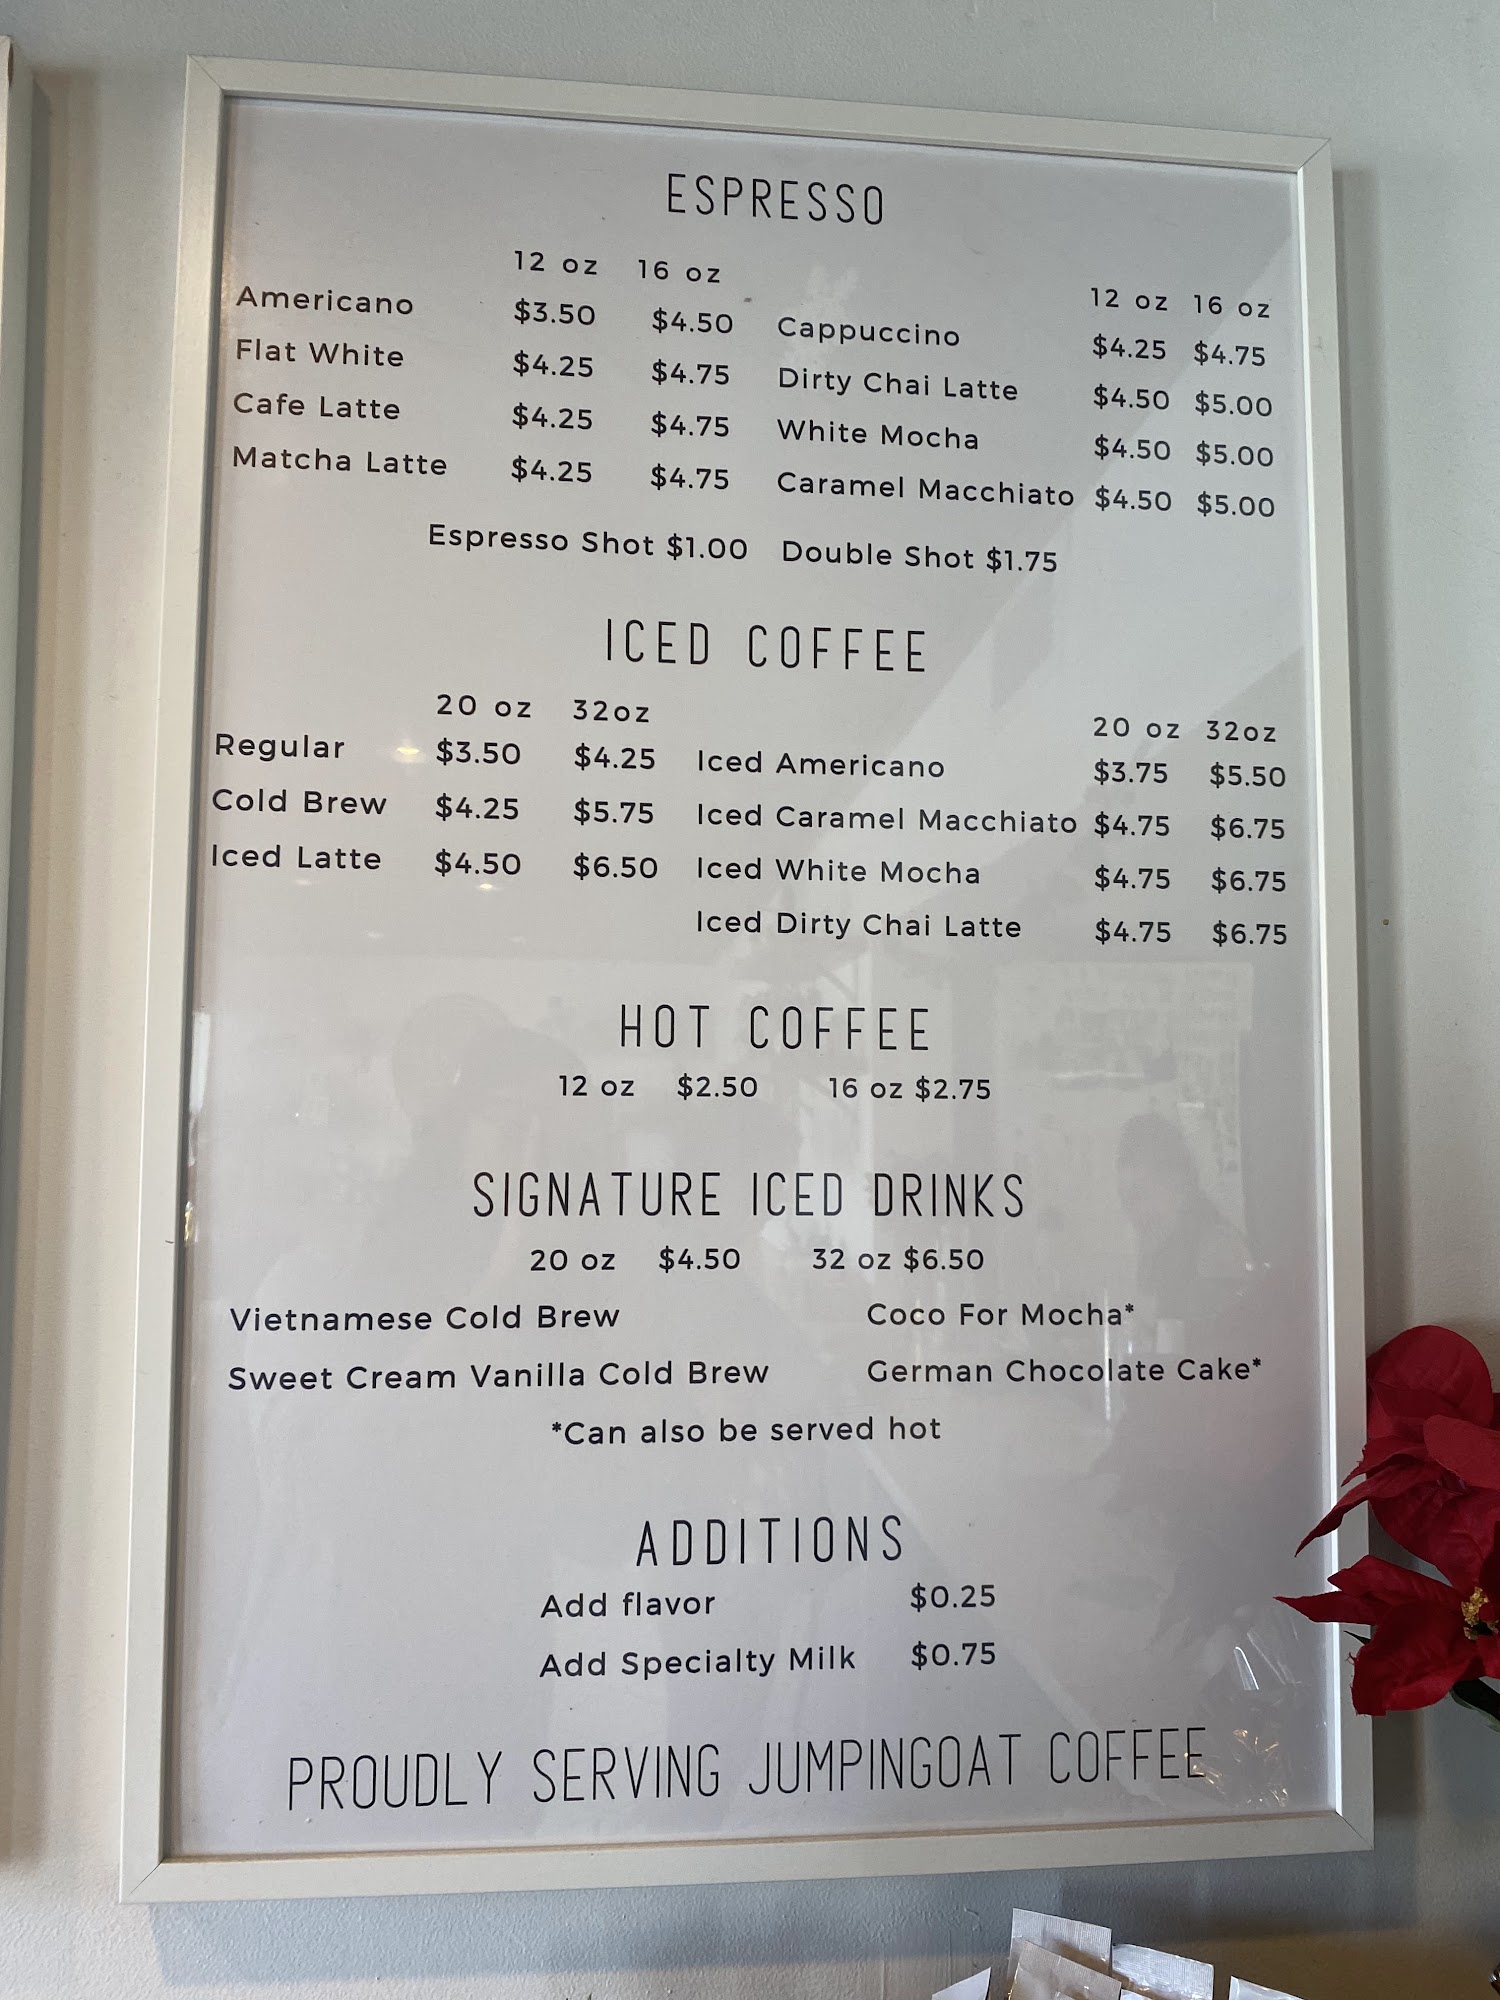 ESPRESSO
12 oz 16 oz 12 oz 16 oz
Americano $3.50 $4.50 Cappuccino $4.25 $4.75
Flat White $4.25 $4.75 Dirty Chai Latte $4.50 $5.00
Cafe Latte $4.25 $4.75 White Mocha $4.50 $5.00
Matcha Latte $4.25 $4.75 Caramel Macchiato $4.50 $5.00
Espresso Shot $1.00 Double Shot $1.75
ICED COFFEE
20 oz 32oz 20 oz 32oz
Regular $3.50 $4.25 Iced Americano $3.75 $5.50
Cold Brew $4.25 $5.75 Iced Caramel Macchiato $4.75 $6.75
Iced Latte $4.50 $6.50 Iced White Mocha $4.75 $6.75
Iced Dirty Chai Latte $4.75 $6.75
HOT COFFEE
12 oz $2.50 16 oz $2.75
SIGNATURE ICED DRINKS
20 oz $4.50 32 oz $6.50
Vietnamese Cold Brew Coco For Mocha*
Sweet Cream Vanilla Cold Brew German Chocolate Cake*
*Can also be served hot
ADDITIONS
Add flavor $0.25
Add Specialty Milk $0.75
PROUDLY SERVING JUMPINGOAT COFFEE